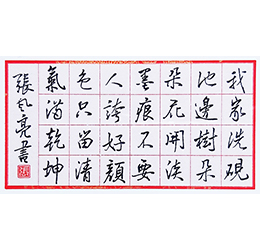 我家洗硯
池邊樹朵
朵花開淡
墨痕不要
人誇好顏
色只留清
氣滿乾坤
張亮書